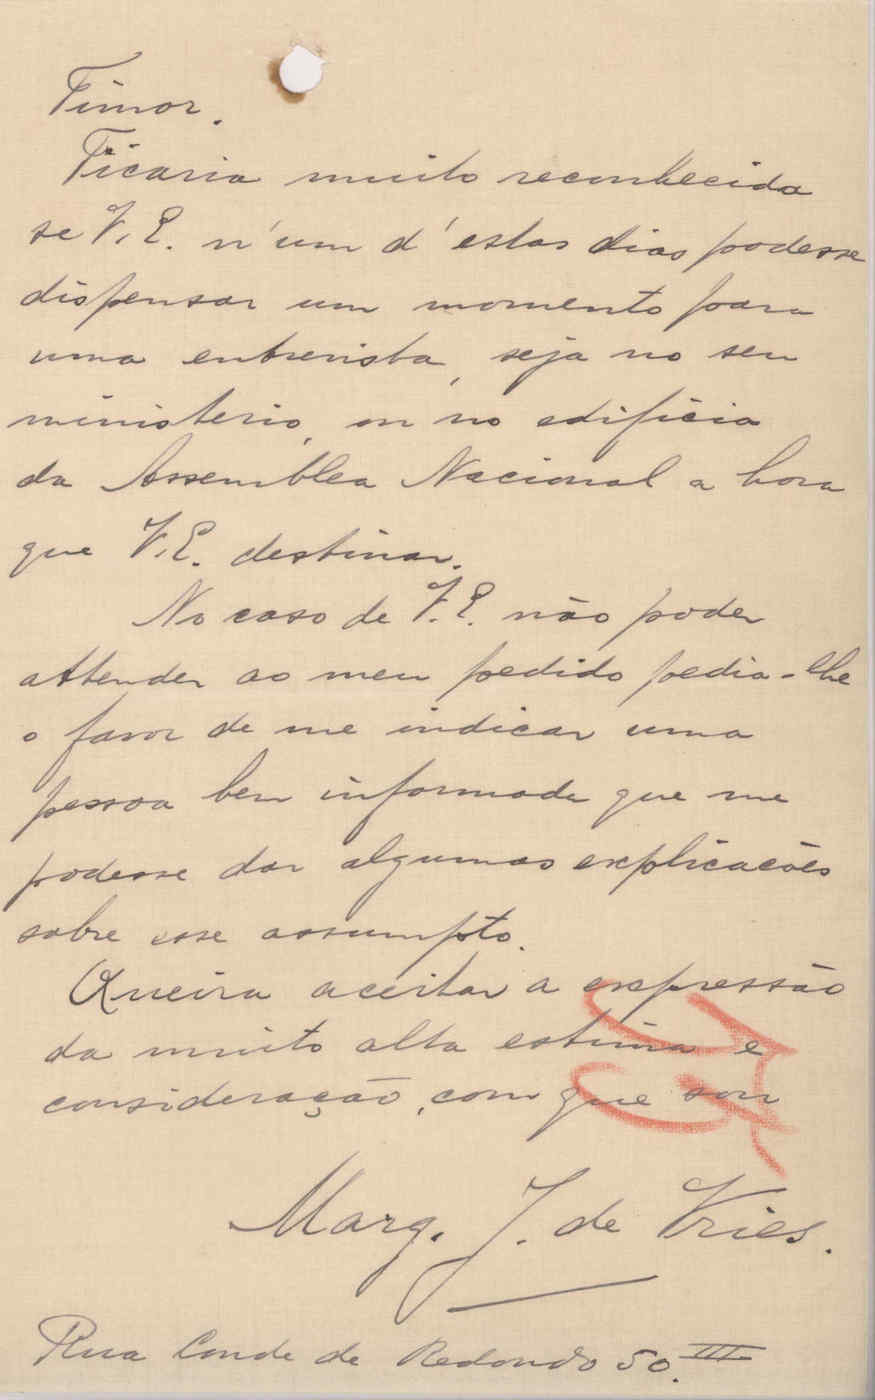 Timor.
Ficaria muito reconhecida
se V. E. n'um d'estas dias podesse
dispensar um momento para
uma entrevista, seja no seu
ministerio, ou no edificio
da Assemblea Nacional a hora
que V. E. destinar.
No caso de V. E. não poder
attender ao meu pedido pedia-lhe
o favor de me indicar uma
pessoa bem informada que me
podesse dar algumas explicacões
sobre esse assumpto.
Queira aceitar a expressão
da muito alta estima e
consideração, com que sou
Marg. J. de Vries.
Rua Conde de Redondo 50. III